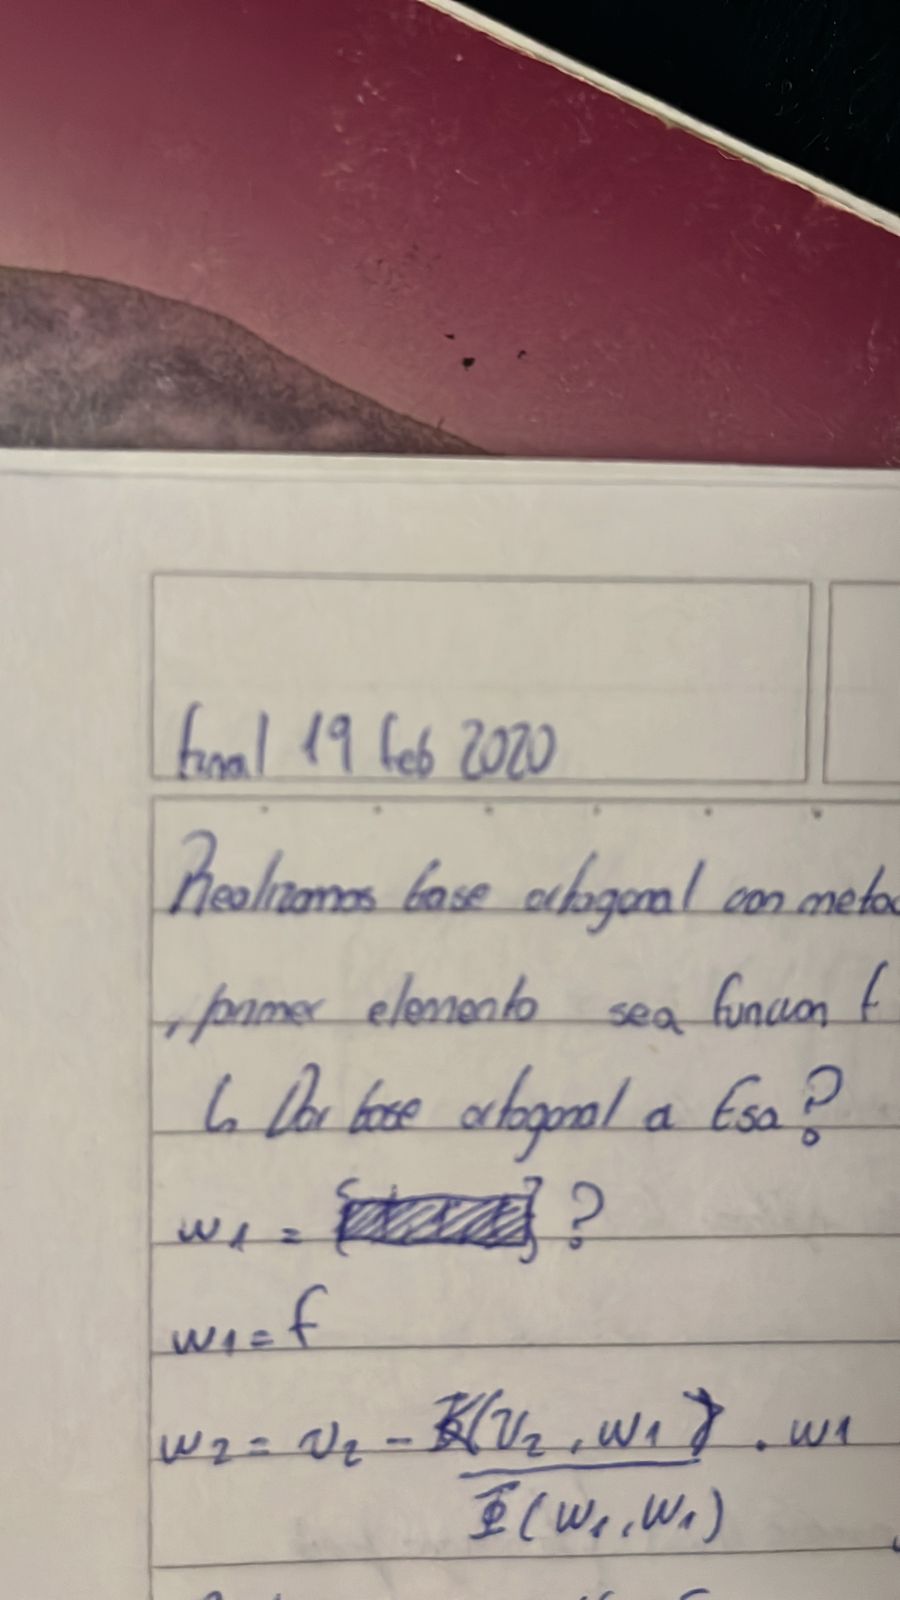 final 19 feb 2020
Realizamos base ortogonal con metod
, primer elemento sea funcion f
↳ Dar base ortogonal a Esa?
w1 = { } ?
w1 = f
w2 = v2 - (v2, w1) . w1
Φ(w1, w1)